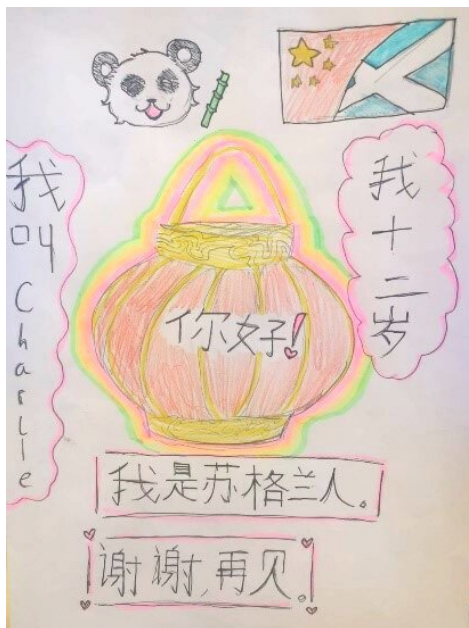 我叫Charlie
我十二岁
你好!
我是苏格兰人。
谢谢,再见。